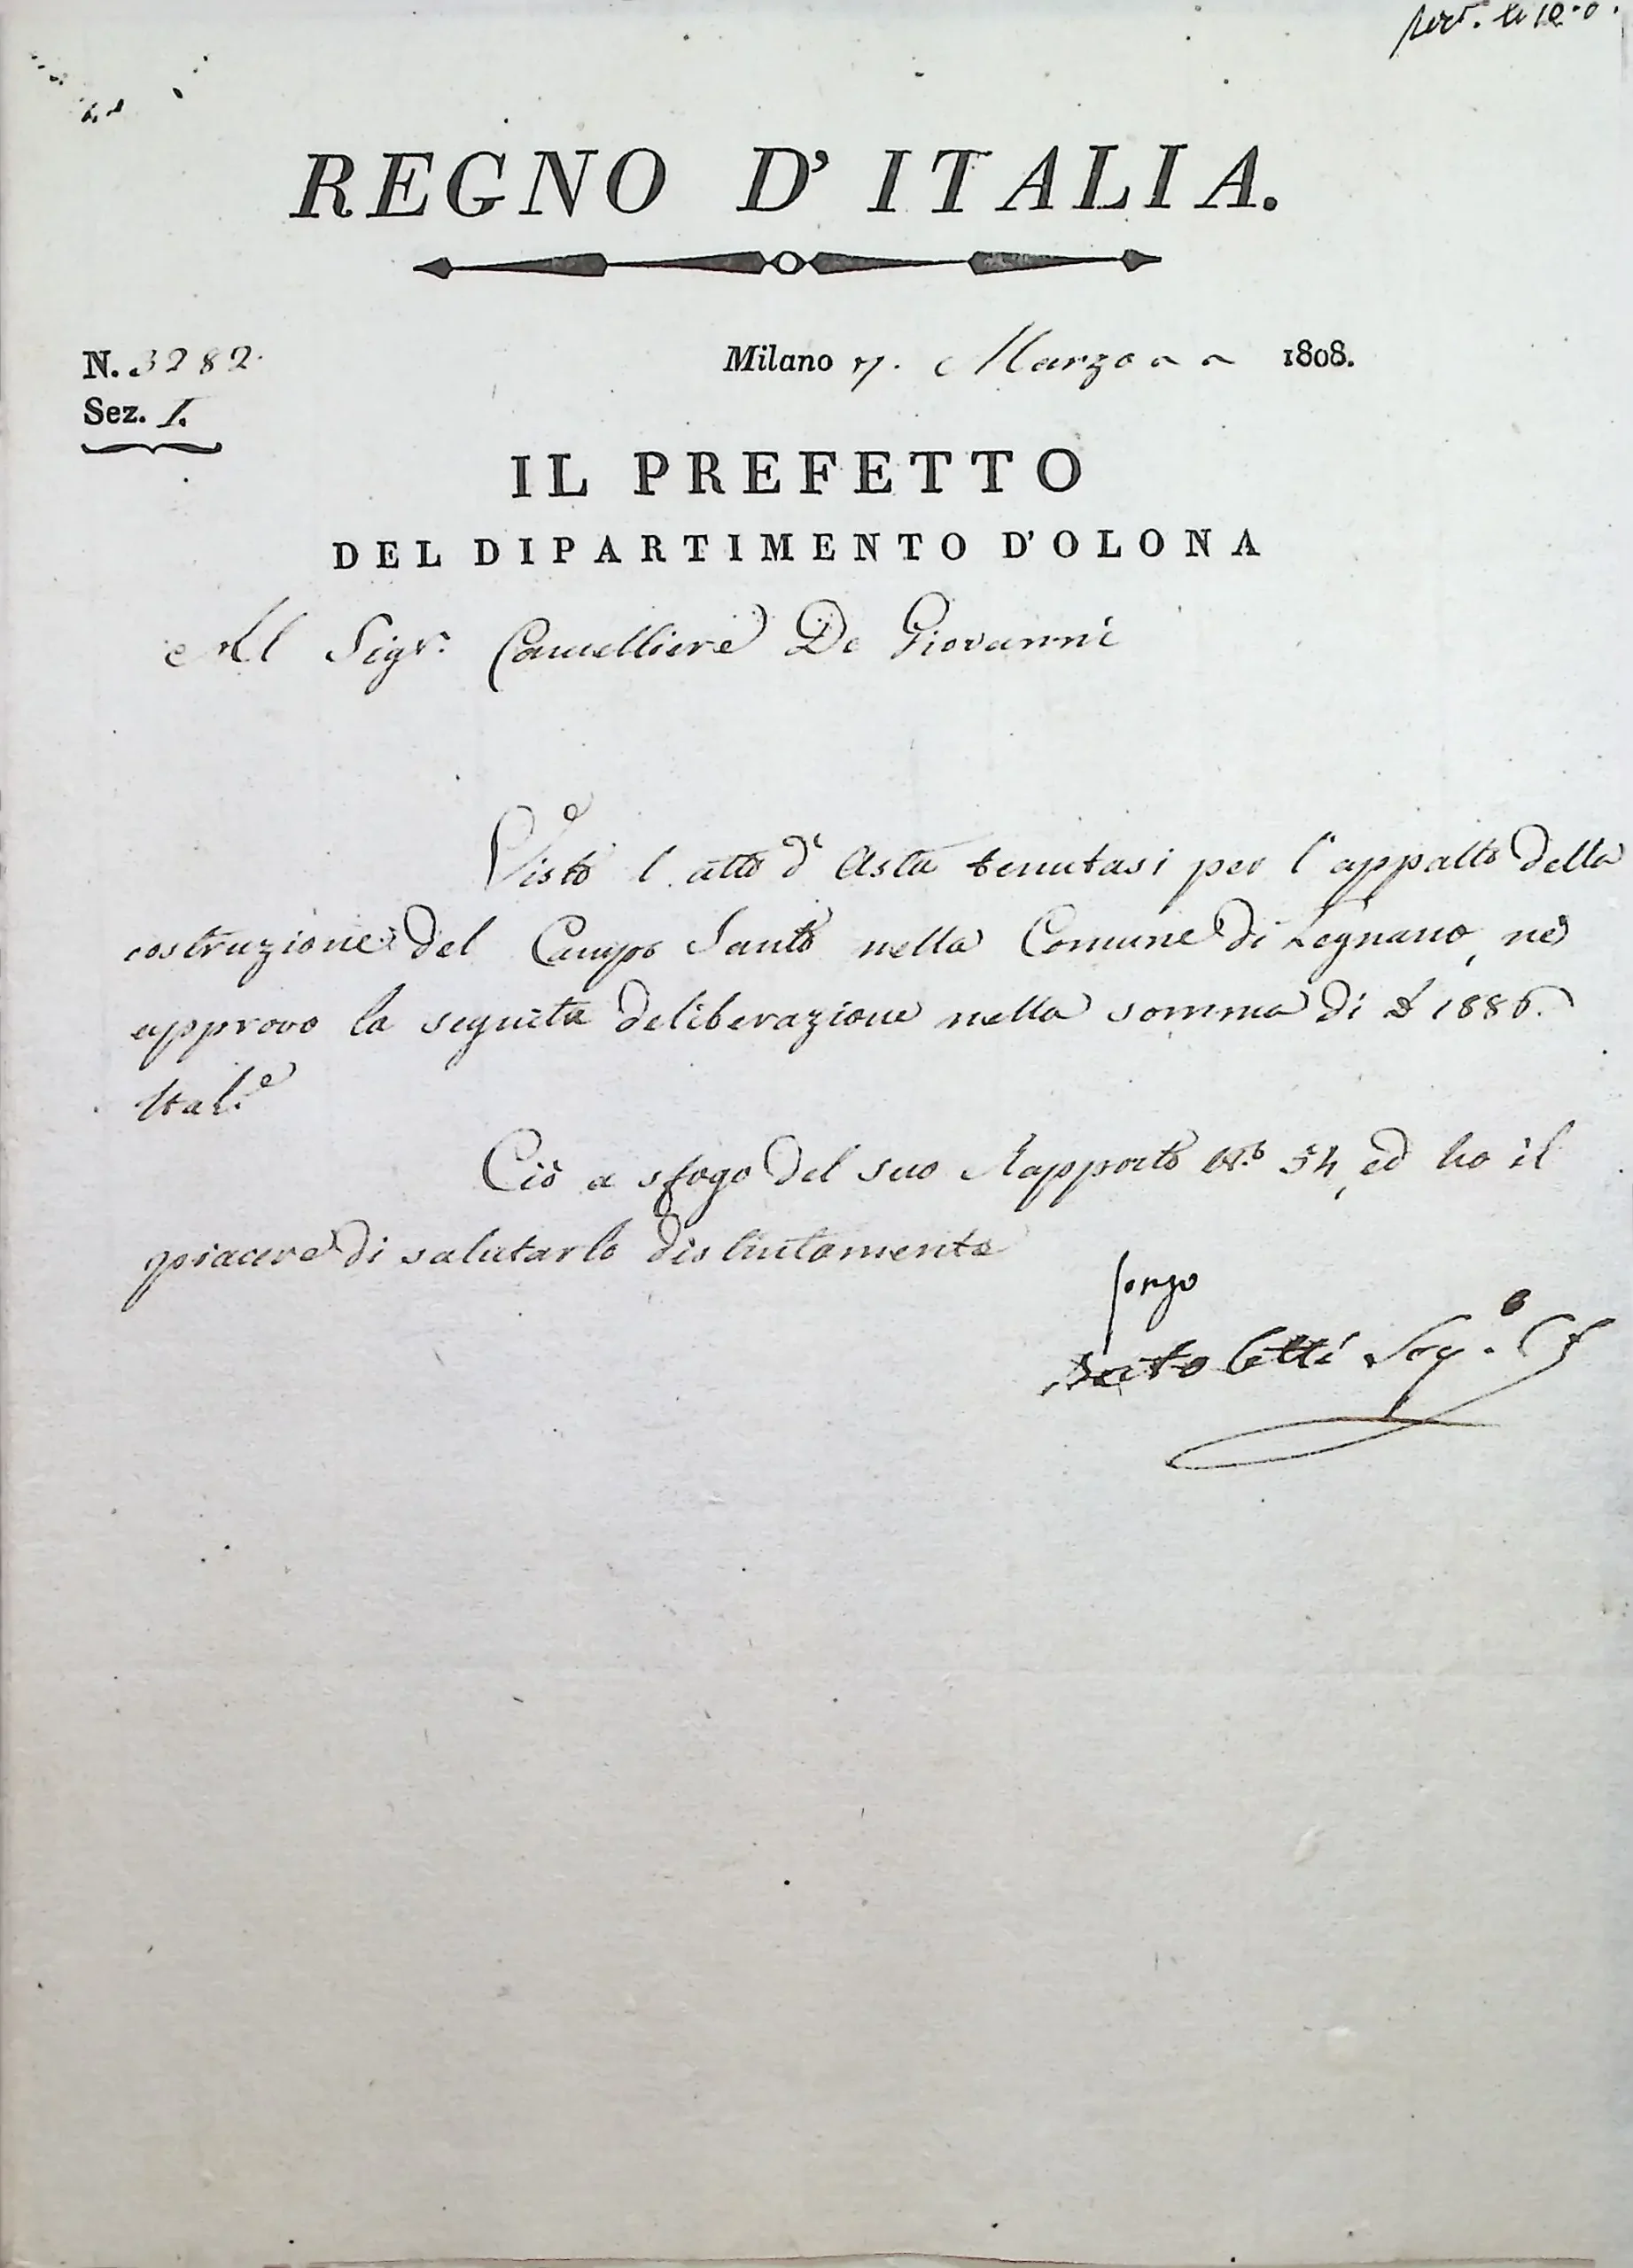 REGNO D'ITALIA.
N. 3282.
Milano 7. Marzo 1808.
Sez. I.
IL PREFETTO
DEL DIPARTIMENTO D'OLONA
Al Sigr. Cancelliere De Giovanni
Visto l'atto d'Asta tenutasi per l'appalto della
costruzione del Campo Santo nella Comune di Legnano, ne
approvo la seguita deliberazione nella somma di £ 1886.
Ital.e
Ciò a sfogo del suo Rapporto N.o 54, ed ho il
piacere di salutarlo distintamente
Bertoletti Seg.o